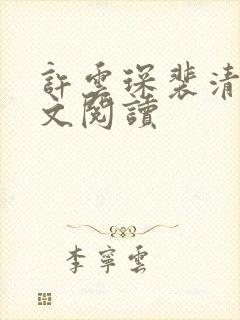 許雲琛裴清
文閱讀
李寧雲